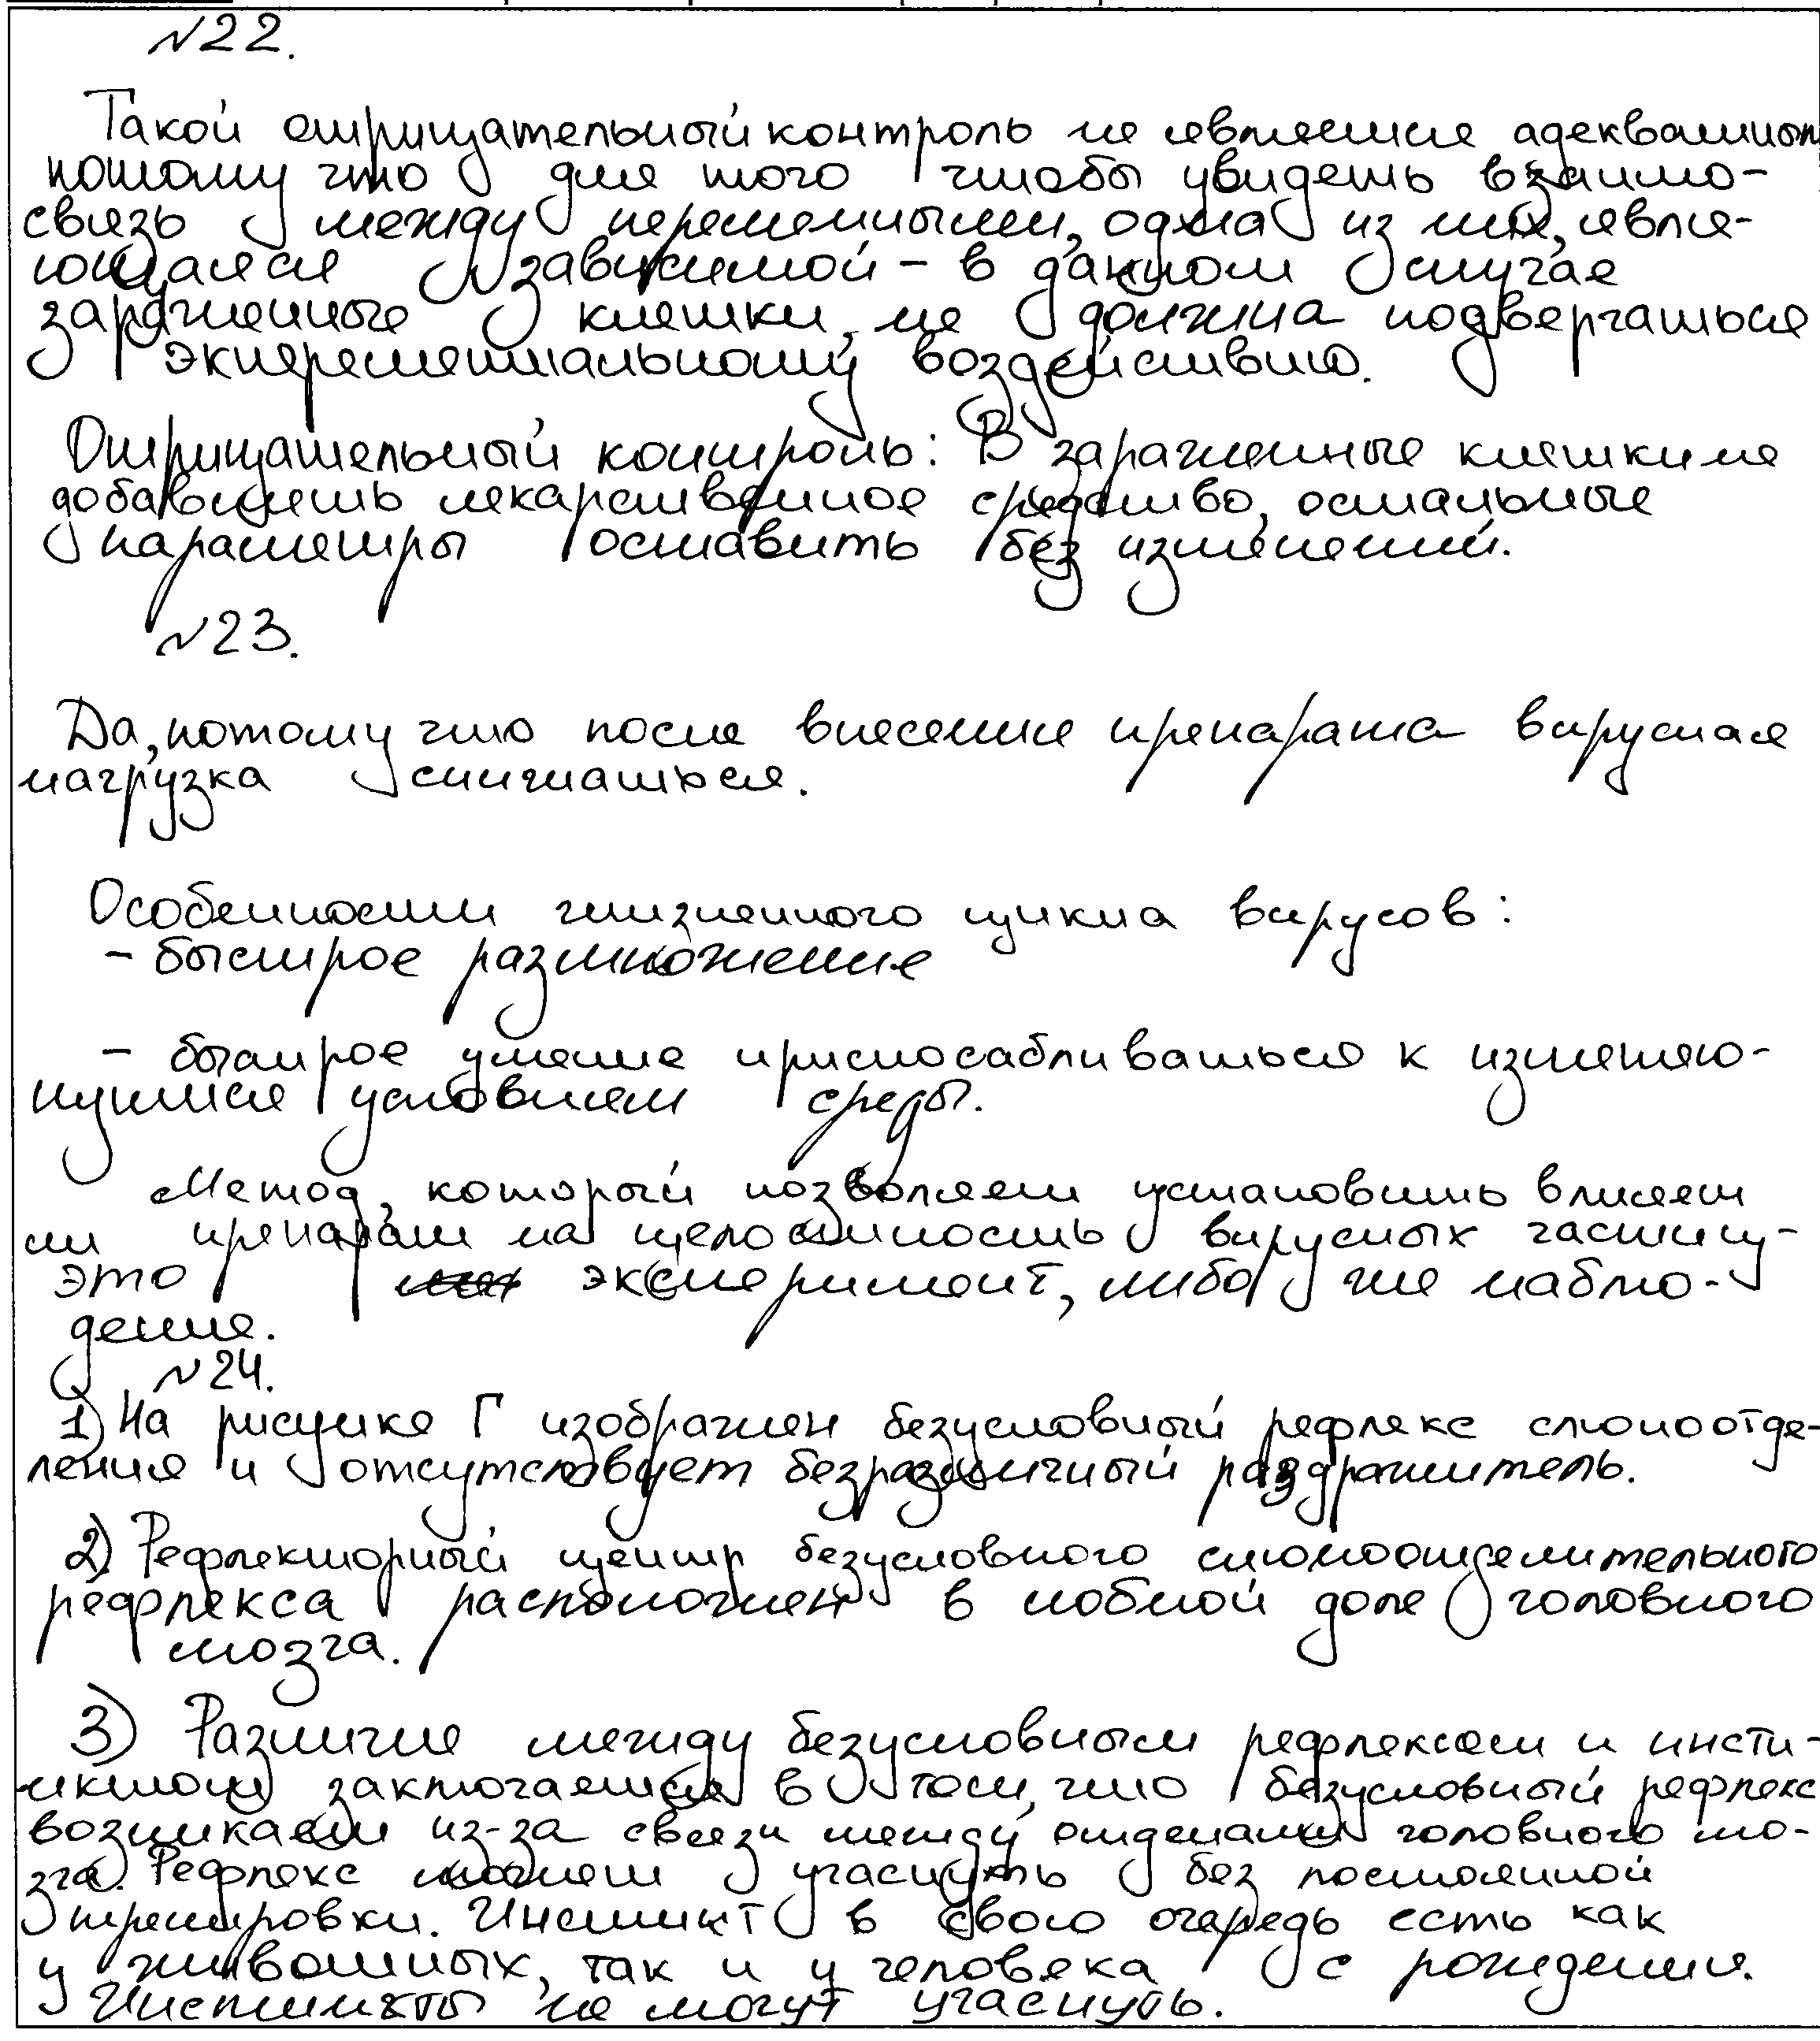 №22.
Такой отрицательный контроль не является адекватным
потому что для того чтобы увидеть взаимо-
связь между переменными, одна из них, явля-
ющаяся зависимой - в данном случае
зараженные клетки, не должна подвергаться
экперементальному воздействию.
Отрицательный контроль: В зараженные клетки не
добавлять лекарственное средство, остальные
параметры оставить без изменений.
№23.
Да, потому что после внесения препарата вирусная
нагрузка снижаться.
Особенности жизненного цикла вирусов:
- быстрое размножение
- быстрое умение приспосабливаться к изменяю-
щимся условиям среды.
Метод, который позволяет установить влияет
ли препарат на целостность вирусных частиц -
это эксперимент, либо же наблю-
дение.
№24.
1) На рисунке Г изображен безусловный рефлекс слюноотде-
ления и отсутствует безразличный раздражитель.
2) Рефлекторный центр безусловного слюноотделительного
рефлекса расположен в лобной доле головного
мозга.
3) Различие между безусловным рефлексом и инсти-
нктом заключается в том, что безусловный рефлекс
возникает из-за связи между отделами головного мо-
зга. Рефлекс может угаснуть без постоянной
тренировки. Инстинкт в свою очередь есть как
у животных, так и у человека с рождения.
Инстинкты не могут угаснуть.